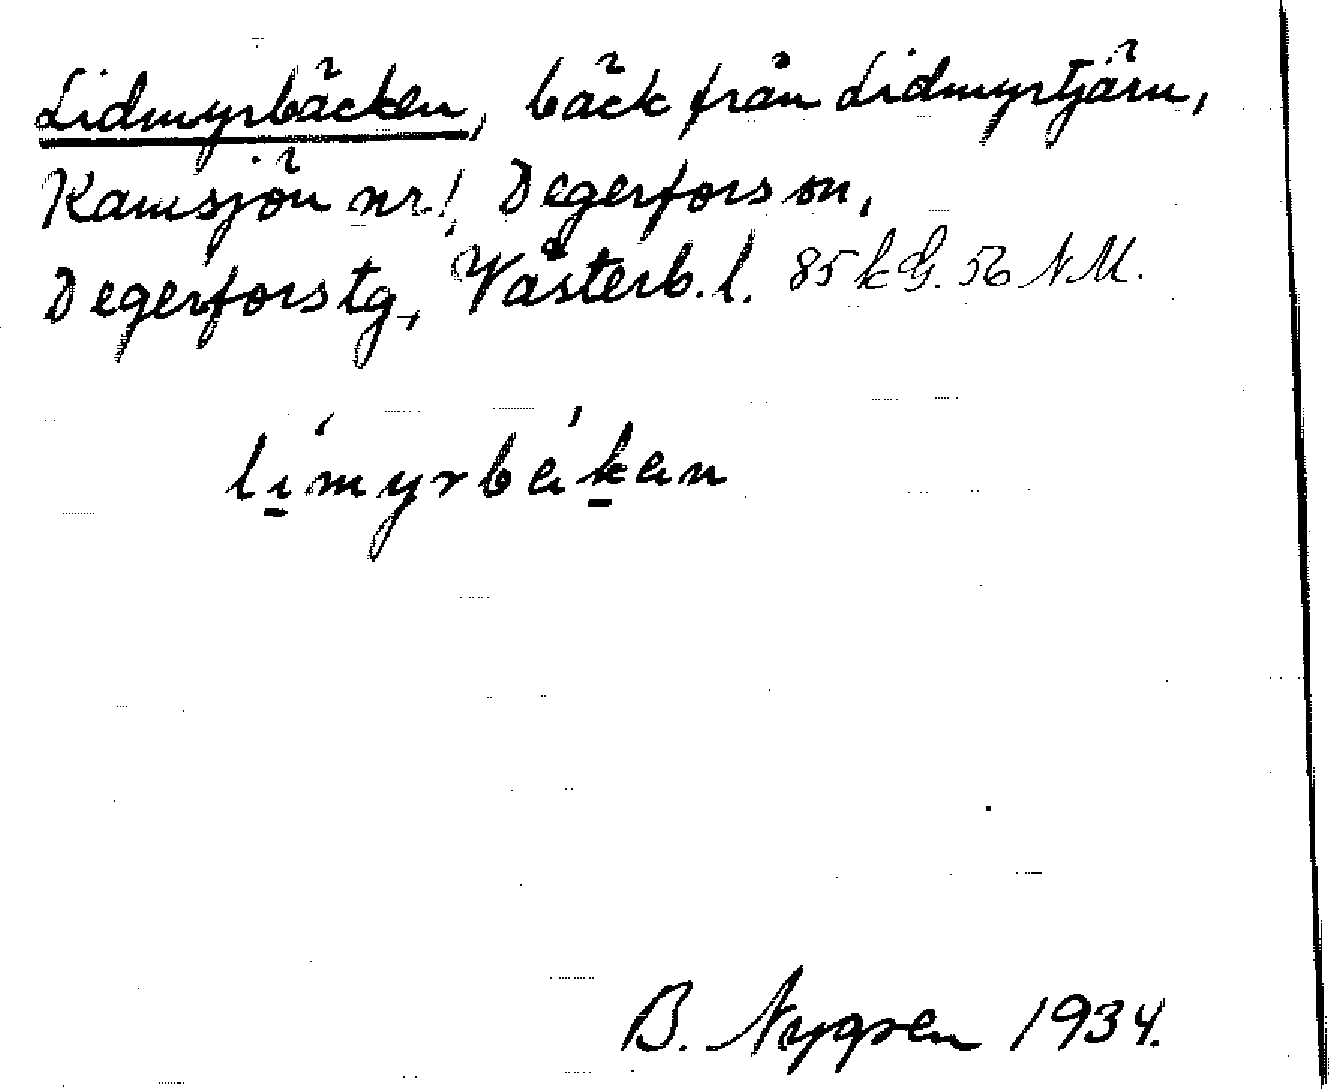 Lidmyrbäcken, bäck från Lidmyrtjärn,
Kamsjön nr 1, Degerfors sn,
Degerfors tg, Västerb. l. 85 kG. 56 NM.
li̱´myrbä´ḵen
B. Nygren 1934.